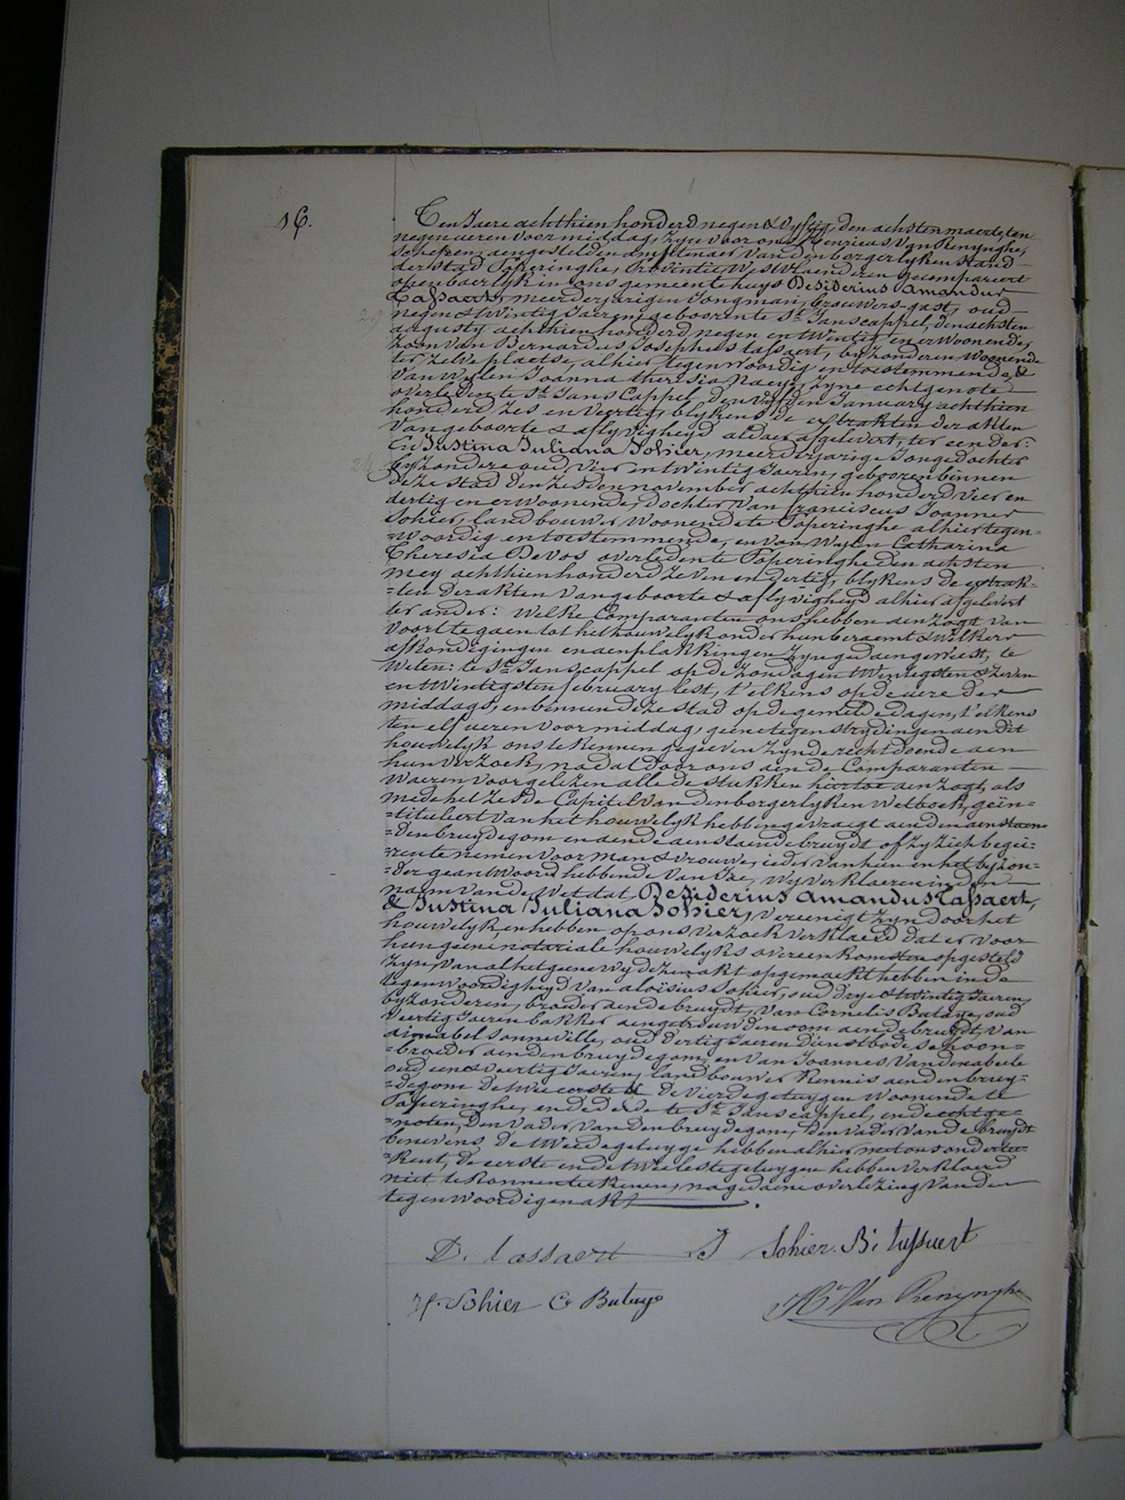 16.
Ten Jaere achthien honderd negen & vyftig, den achsten maerte, ten
negen ueren voormiddag, Zyn voor ons Henricus Van Renynghe,
schepen aengestelden amptenaer van den borgerlyken stand
der stad Poperinghe, Provintie Westvlaenderen gecompareert
openbaerlyk in ons gemeentehuys Desiderius Amandus
Tassaert, meerderjarigen Jongman, brouwers-gast, oud
negen & twintig Jaeren, geboren te St. Janscappel, den achsten
augusty achthien honderd negen en twintig en er woonende,
zoon van Bernardus Josephus tassaert, byzonderen woonende
ter zelve plaetse, alhier tegenwoordig en toestemmende, &
van wylen Joanna theresia Naeye, zyne echtgenote
overleden te St. Jans Cappel, den vyfden January achthien
honderd zes en veertig, blykens de extrakten der akten
van geboorte & aflyvigheyd aldaer afgelevert, ter eender:
En Justina Juliana Sohier, meerderjarige Jongedochter
byzondere oud vier en twintig Jaeren, geboren binnen
deze stad den zesden november achthien honderd vier en
dertig en er woonende, dochter van franciscus Joannes
Sohier, landbouwer woonende te Poperinghe alhier tegen-
=woordig en toestemmende, en van wylen Catharina
Theresia De Vos overleden te Poperinghe den achsten
mey achthien honderd zeven en dertig, blykens de extrak-
=ten der akten van geboorte & aflyvigheyd alhier afgelevert
ter ander: Welke Comparanten ons hebben aenzogt van
voort te gaen tot het houwelyk onder hun beraemt & welkers
afkondigingen en aenplakkingen zyn gedaen geweest, te
weten: te St. Janscappel op de zondagen twintigsten & zeven
en twintigsten february lest, t'elkens op de uere der
middags, en binnen deze stad op de gemelde dagen, t'elkens
ten elf ueren voormiddag, geene tegenstrydingen aen dit
houwelyk ons te kennen gegeeven zynde recht doende aen
hun verzoek, na dat door ons aen de Comparanten
waeren voorgelezen alle de stukken hiertoe aenzogt, als
mede het zesde Capitel van den borgerlyken Wetboek, geïn-
=titulert van het houwelyk hebben gevraegt aen den aenstaen
=den bruydegom en aen de aenstaende bruydt of zy zich begee-
=ren te nemen voor man & vrouwe, ieder van hun en het byzon-
=der geantwoord hebbende van Jae, wy verklaeren in den
naem van de Wet dat Desiderius Amandus Tassaert,
& Justina Juliana Sohier, vereenigt zyn door het
houwelyk, en hebben op ons verzoek verklaerd dat er voor
hun geene notariale houwelyks overeenkomsten opgesteld
zyn, van al het geene wy dezen akt opgemaekt hebben in de
tegenwoordigheyd van aloïsius Sohier, oud drye & twintig Jaeren,
byzonderen, broeder aen de bruydt, van Cornelis Bataye, oud
veertig Jaeren bakker aengetrouwden oom aen de bruydt, van
aimabel Sonneville, oud dertig Jaeren dienstbode schoon=
=broeder aen den bruydegom, en van Joannes Vandenabeele
oud een & veertig Jaeren, landbouwer Kennis aen den bruy-
=degom de twee eerste & de vierde getuygen woonende te
Poperinghe, en de derde te St. Janscappel, en de echtge-
=noten, den vader van den bruydegom, den vader van de bruydt
benevens de tweede getuyge hebben alhier met ons ondertee-
=kent, de eerste en de twee leste getuygen hebben verklaerd
niet te konnen teekenen, na gedaene overlezing van den
tegenwoordigen akt
D. tassaert J Sohier B: tassaert
Sohier C Bataye
Hri Van Renynghe